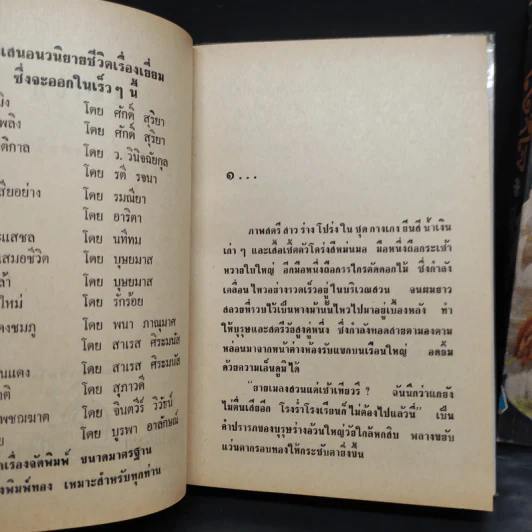 เสนอนวนิยายชีวิตเรื่องเยี่ยม
ซึ่งจะออกในเร็ว ๆ นี้
โดย ศักดิ์ สุริยา
พลิง โดย ศักดิ์ สุริยา
ติกาล โดย ว. วินิจฉัยกุล
โดย รตี รจนา
สียอย่าง โดย รมณียา
โดย อาริตา
ะแสชล โดย นทีทม
เสมอชีวิต โดย บุษยมาส
ล้า โดย บุษยมาส
ใหม่ โดย รักร้อย
ดงชมภู โดย พนา ภาณุมาศ
โดย สาเรส ศิระมนัส
นแดง โดย สาเรส ศิระมนัส
าติ โดย สุภาวดี
พชฌฆาต โดย จินตวีร์ วิวัธน์
โดย บูรพา อารักษณ์
เรื่องจัดพิมพ์ ขนาดมาตรฐาน
งพิมพ์ทอง เหมาะสำหรับทุกท่าน
๑...
ภาพสตรี สาว ร่าง โปร่ง ใน ชุด กางเกง ยีนส์ น้ำเงิน
เก่า ๆ และเสื้อเชิ้ตตัวโคร่งสีหม่นมอ มือหนึ่งถือกระเช้า
หวายใบใหญ่ อีกมือหนึ่งถือกรรไกรตัดดอกไม้ ซึ่งกำลัง
เคลื่อนไหวอย่างรวดเร็วอยู่ในบริเวณสวน จนผมยาว
สลวยที่รวบไว้เป็นหางม้านั้นไหวไปมาอยู่เบื้องหลัง ทำ
ให้บุรุษและสตรีวัยสูงคู่หนึ่ง ซึ่งกำลังทอดสายตามองตาม
หล่อนมาจากหน้าต่างห้องรับแขกบนเรือนใหญ่ อดยิ้ม
ด้วยความเอ็นดูมิได้
"ยายเพลงสวนแต่เช้าเชียวรึ ? ฉันนึกว่าแกยัง
ไม่ตื่นเสียอีก โรงร่ำโรงเรียนก็ไม่ต้องไปแล้วนี่" เป็น
คำปรารภของบุรุษร่างอ้วนใหญ่วัยใกล้หกสิบ พลางขยับ
แว่นตากรอบทองให้กระชับตายิ่งขึ้น